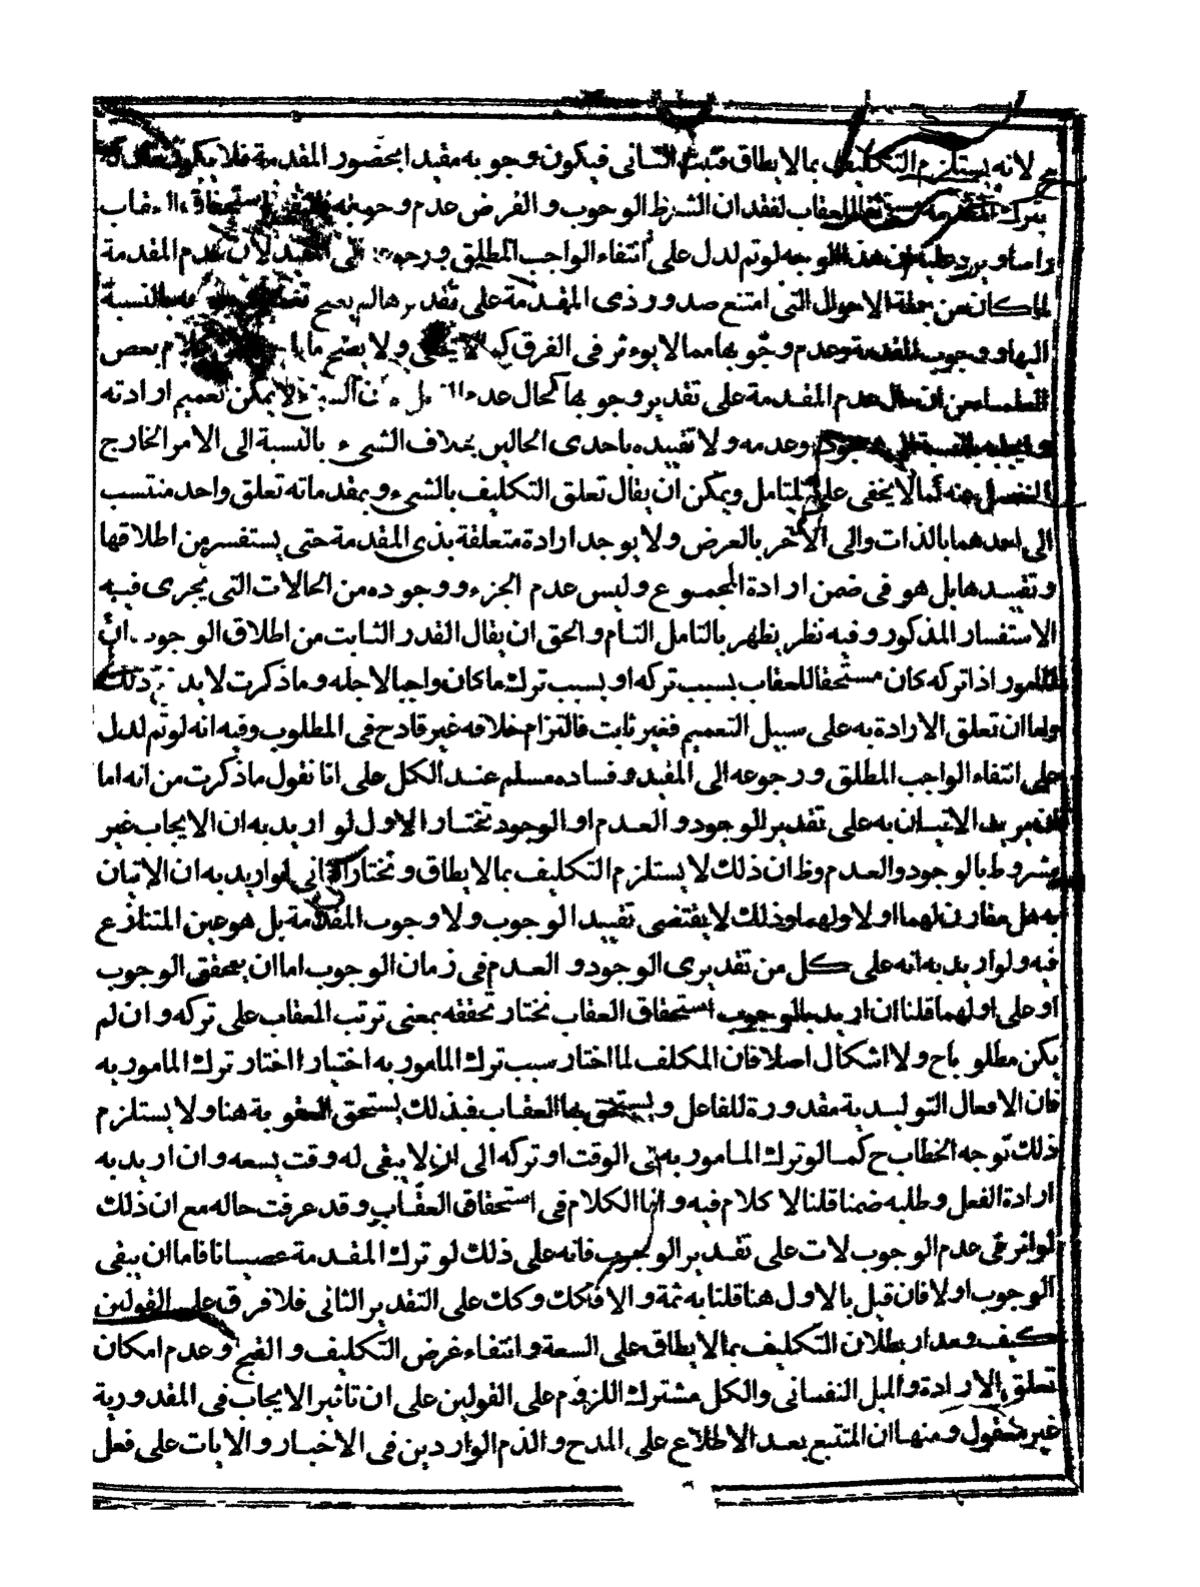 لانه يستلزم التكليف بما لا يطاق فثبت الثانى فيكون وجوبه مقيدا بحضور المقدمة فلا يكون
بترك المقدمة مستحقا للعقاب لفقدان الشرط الوجوب والفرض عدم وجوبه استحقاق العقاب
راسا ويرد عليه ان هذا الوجه لو تم لدل على انتفاء الواجب المطلق ورجوعه الى المقيد لان عدم المقدمة
لما كان من جملة الاحوال التى امتنع صدور ذى المقدمة على تقديرها لم يصح بالنسبة
اليها ووجوب المقدمة وعدم وجوبها مما لا يوءثر فى الفرق كما لا يخفى ولا يصح ما كلام بعض
العلماء من ان حال عدم المقدمة على تقدير وجوبها كحال لا يمكن تعميم ارادته
وايجابه بالنسبة الى وجوده وعدمه ولا تقييده باحدى الحالين بخلاف الشىء بالنسبة الى الامر الخارج
المنفصل منه كما لا يخفى على المتامل ويمكن ان يقال تعلق التكليف بالشىء وبمقدماته تعلق واحد منتسب
الى احدهما بالذات والى الآخر بالعرض ولا يوجد ارادة متعلقة بذى المقدمة حتى يستفسر من اطلاقها
وتقييدها بل هو فى ضمن ارادة المجموع وليس عدم الجزء ووجوده من الحالات التى يجرى فيه
الاستفسار المذكور وفيه نظر يظهر بالتامل التام والحق ان يقال القدر الثابت من اطلاق الوجوب ان
المامور اذا تركه كان مستحقا للعقاب بسبب تركه او بسبب ترك ما كان واجبا لاجله وما ذكرت لا ذلك
واما ان تعلق الارادة به على سبيل التعميم فغير ثابت فالتزام خلافه غير قادح فى المطلوب وفيه انه لو تم لدل
على انتفاء الواجب المطلق ورجوعه الى المقيد وفساده مسلم عند الكل على انا نقول ما ذكرت من انه اما
ان يريد الاتيان به على تقدير الوجود والعدم او الوجود نختار الاول لو اريد به ان الايجاب غير
مشروط بالوجود والعدم وظ ان ذلك لا يستلزم التكليف بما لا يطاق ونختار الثانى لو اريد به ان الاتيان
به هل مقارن لهما او لاولهما وذلك لا يقتضى تقييد الوجوب ولا وجوب المقدمة بل هو عين المتنازع
فيه ولو اريد به انه على كل من تقديرى الوجود والعدم فى زمان الوجوب اما ان يتحقق الوجوب
او على اولهما قلنا ان اريد بالوجوب استحقاق العقاب نختار تحققه بمعنى ترتب العقاب على تركه وان لم
يكن مطلوباح ولا اشكال اصلا فان المكلف لما اختار سبب ترك المامور به اختيارا اختار ترك المامور به
فان الافعال التوليدية مقدورة للفاعل ويستحق بها العقاب فبذلك يستحق العقوبة هنا ولا يستلزم
ذلك توجه الخطاب ح كما لو ترك المامور به فى الوقت او تركه الى ان لا يبقى له وقت يسعه وان اريد به
ارادة الفعل وطلبه ضمنا قلنا لا كلام فيه وانما الكلام فى استحقاق العقاب وقد عرفت حاله مع ان ذلك
لو اثر فى عدم الوجوب لات على تقدير الوجوب فانه على ذلك لو ترك المقدمة عصيانا فاما ان يبقى
الوجوب اولا فان قيل بالاول هنا قلنا به ثمة والا فكك وكك على التقدير الثانى فلا فرق على القولين
كيف ومدار بطلان التكليف بما لا يطاق على السعة وانتفاء غرض التكليف والقبح وعدم امكان
تعلق الارادة والميل النفسانى والكل مشترك اللزوم على القولين على ان تاثير الايجاب فى المقدورية
غير معقول ومنها ان المتتبع بعد الاطلاع على المدح والذم الواردين فى الاخبار والايات على فعل